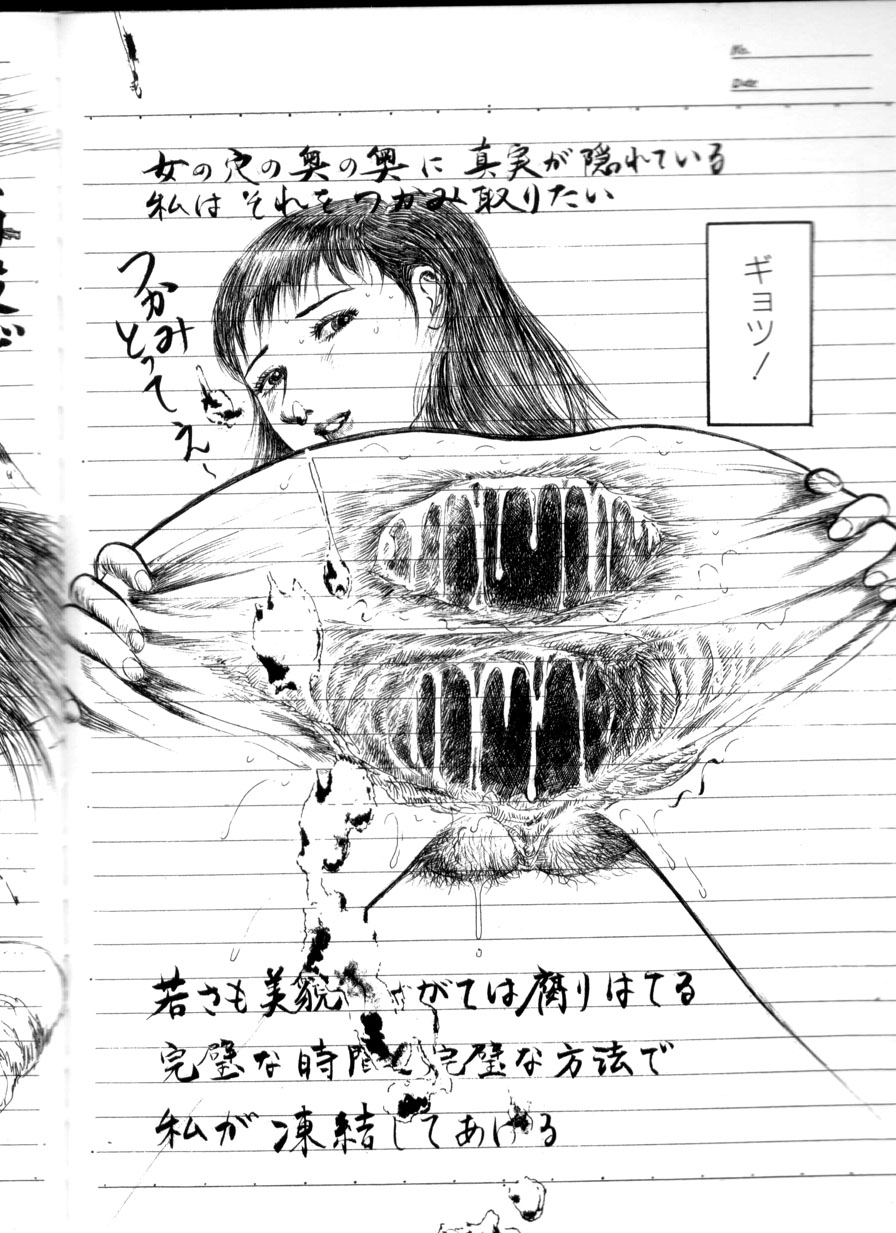 No.
Date
女の穴の奥の奥に真実が隠れている
私はそれをつかみ取りたい
つかみ
とってえ～
ギョッ！
若さも美貌 がては腐りはてる
完璧な時間 完璧な方法で
私が凍結してあげる